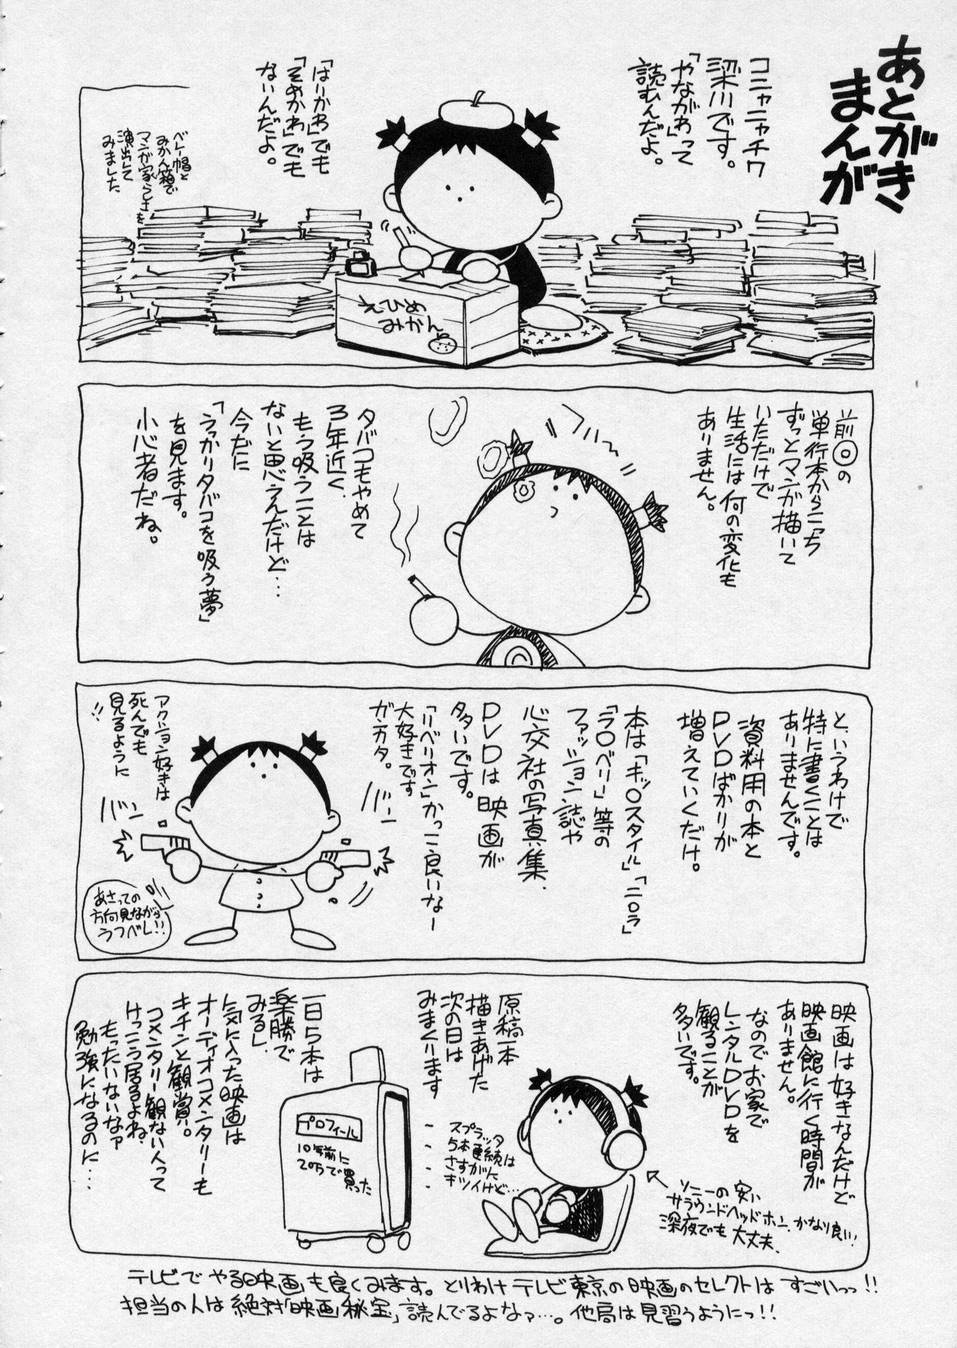 あとがき
まんが
コニャニャチワ
梁川です。
「やながわ」って
読むんだよ。
「はりかわ」でも
「そめかわ」でも
ないんだよ。
ベレー帽と
みかん箱で
マンガ家らしさを
演出して
みました
えひめ
みかん
前回の
単行本からこっち
ずっとマンガ描いて
いただけで
生活には何の変化も
ありません。
タバコもやめて
3年近く、
もう吸うことは
ないと思えんだけど…
今だに
「うっかりタバコを吸う夢」
を見ます。
小心者だね。
というわけで
特に書くことは
ありませんです。
資料用の本と
DVDばかりが
増えていくだけ。
本は「キッ○スタイル」「ニ○ラ」
「ラ○ベリー」等の
ファッション誌や
心交社の写真集、
DVDは映画が
多いです。
「リベリオン」かっこ良いなー
大好きです
ガンカタ。
バンッ
バンッ
アクション好きは
死んでも
見るように
!!
あさっての
方向見ながら
うつべし!!
映画は好きなんだけど
映画館に行く時間が
ありません。
なのでお家で
レンタルDVDを
観ることが
多いです。
ソニーの安い
サラウンドヘッドホン。かなり良い!
深夜でも大丈夫。
原稿一本
描きあげた
次の日は
みまくります
スプラッタ
5本連続は
さすがに
キツイけど…
プロフィール
10年前に
20万で買った
一日5本は
楽勝で
みるし、
気に入った映画は
オーディオコメンタリーも
キチンと観賞。
コメンタリー観ない人って
けっこう居るよね、
もったいないなァ
勉強になるのに…
テレビでやる映画も良くみます。とりわけテレビ東京の映画のセレクトはすごいっっ!!
担当の人は絶対「映画秘宝」読んでるよなァ…。他局は見習うようにっ!!